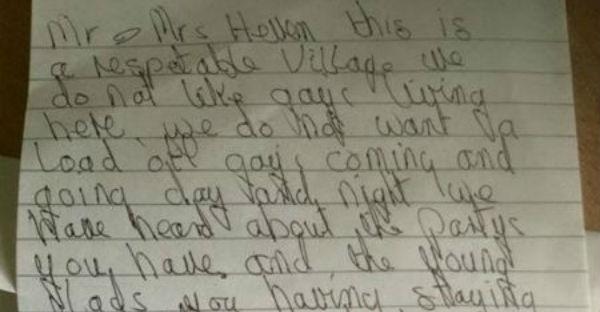 Mr & Mrs Hellen this is
a respetable Village we
do not like gays living
here. we do not want a
load off gays coming and
going day and night we
Have heard about the Partys
you have. and the young
lads you having staying